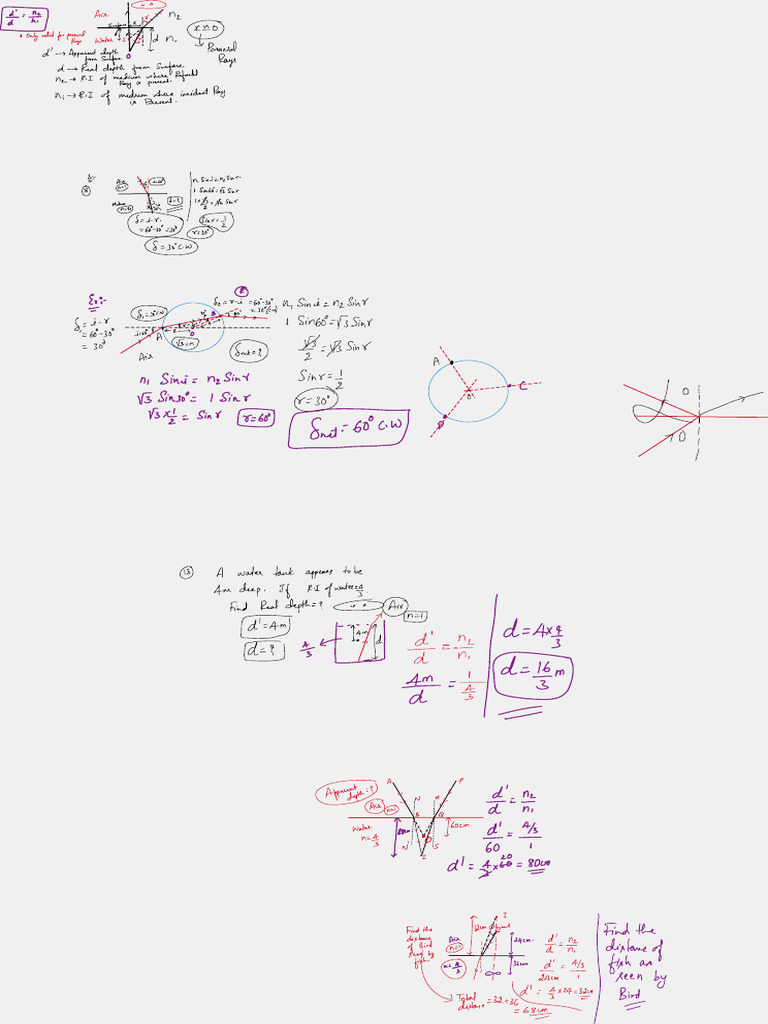 d'/d = n₂/n₁
Air
n₂
* Only valid for paraxial Rays
Surface
Water
d
n₁
x≈0
Paraxial Rays
d' → Apparent depth from Surface
d → Real depth from Surface
n₂ → R.I of medium where Refracted Ray is present.
n₁ → R.I of medium where incident Ray is Present.
n₁ Sini = n₂ Sinr
1 Sin60 = √3 Sinr
1×√3/2 = √3 Sinr
Sinr = 1/2
r=30°
δ = i-r
= 60°-30° = 30°
δ = 30° C.W
Ex:-
δ₁ = i-r
= 60°-30°
= 30°
δ₁=30°CW
δ₂ = r-i = 60°-30°
= 30° CW
i=60°
A
B
O
√3=n
Air
δnet = ?
n₁ Sini = n₂ Sinr
1 Sin60° = √3 Sinr
√3/2 = √3 Sinr
Sinr = 1/2
r=30°
n₁ Sini = n₂ Sinr
√3 Sin30° = 1 Sinr
√3 × 1/2 = Sinr
r=60°
δnet = 60° C.W
A
O
C
O
13
A water tank appears to be
4m deep. If R.I of water=4/3
Find Real depth=?
Air
n=1
d'=4m
d=?
4/3
4m
d
d'/d = n₂/n₁
4m/d = 1/(4/3)
d = 4×4/3
d = 16/3 m
Apparent depth=?
Air
n=1
A
P
N
M
B
Q
Water
n=4/3
N'
S
I
60cm
d'/d = n₂/n₁
d'/60 = 4/3/1
d' = 4/3×60 20 = 80cm
Find the distance of Bird seen by fish.
Air
n=1
n=4/3
I
24cm
36cm
d'/d = n₂/n₁
d'/24cm = 4/3/1
d' = 4/3×24 = 32cm
Total distance = 32+36
= 68cm
Find the
distance of
fish as
seen by
Bird